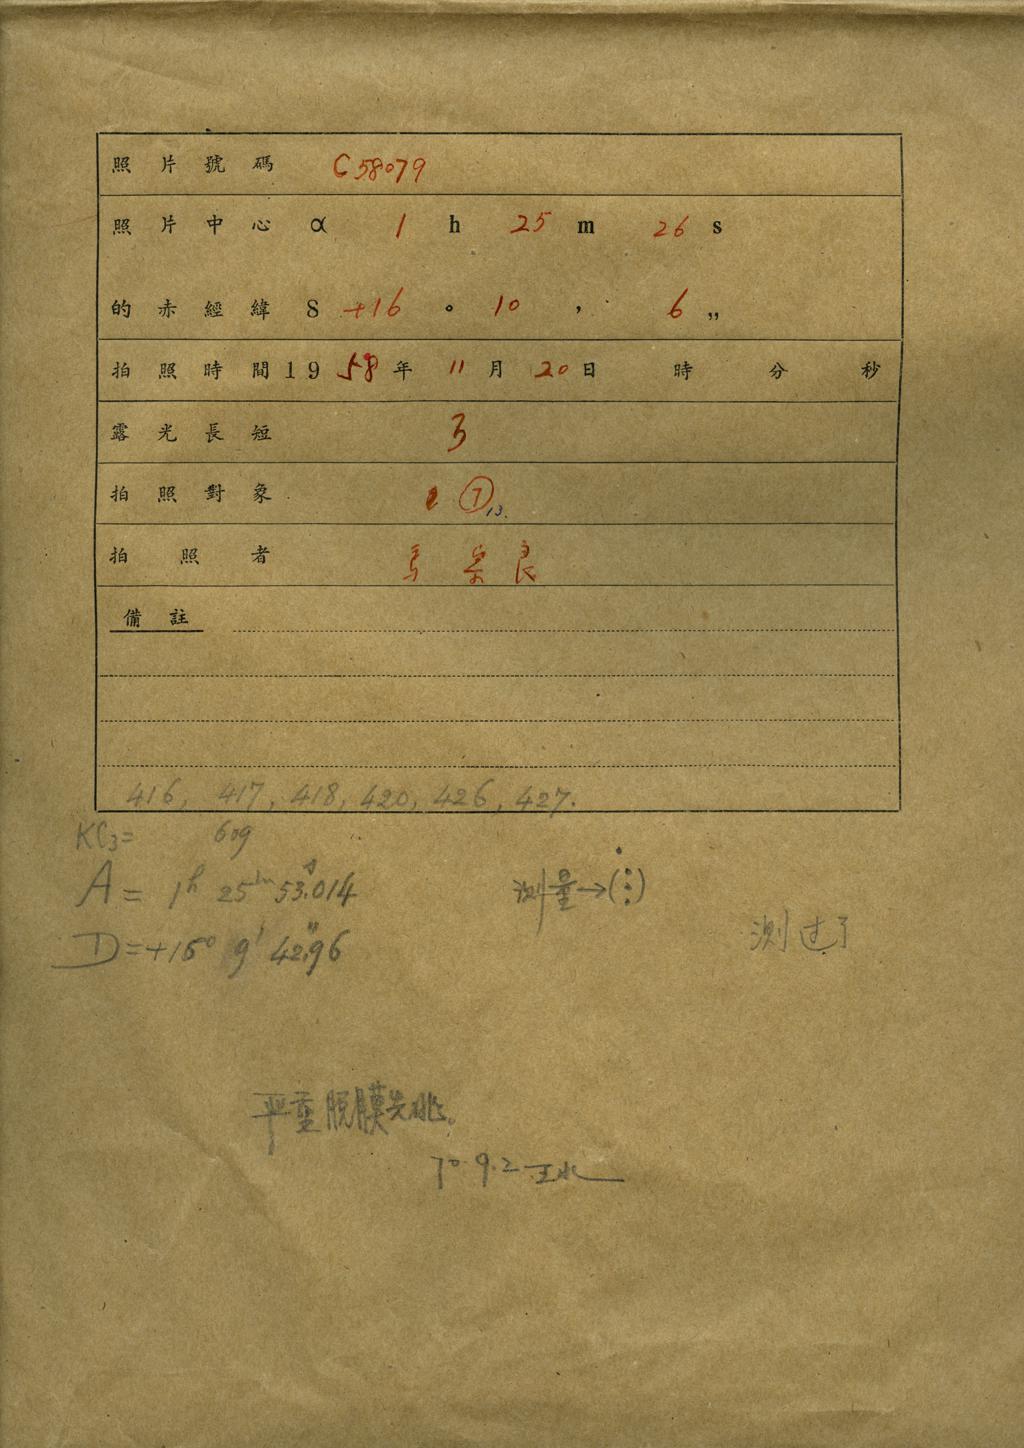 照片號碼 C58079
照片中心 α 1 h 25 m 26 s
的赤經緯 δ +16 ° 10 ′ 6 ″
拍照時間 1958年 11月 20日 時 分 秒
露光長短 3
拍照對象 ⑦ 13.
拍照者 良
備註
416, 417, 418, 420, 426, 427.
KC3= 609
A = 1h 25m 53.s014
D = +16° 9′ 42.″96
测量→(⋮)
测过了
严重脱膜
70.9.2 王